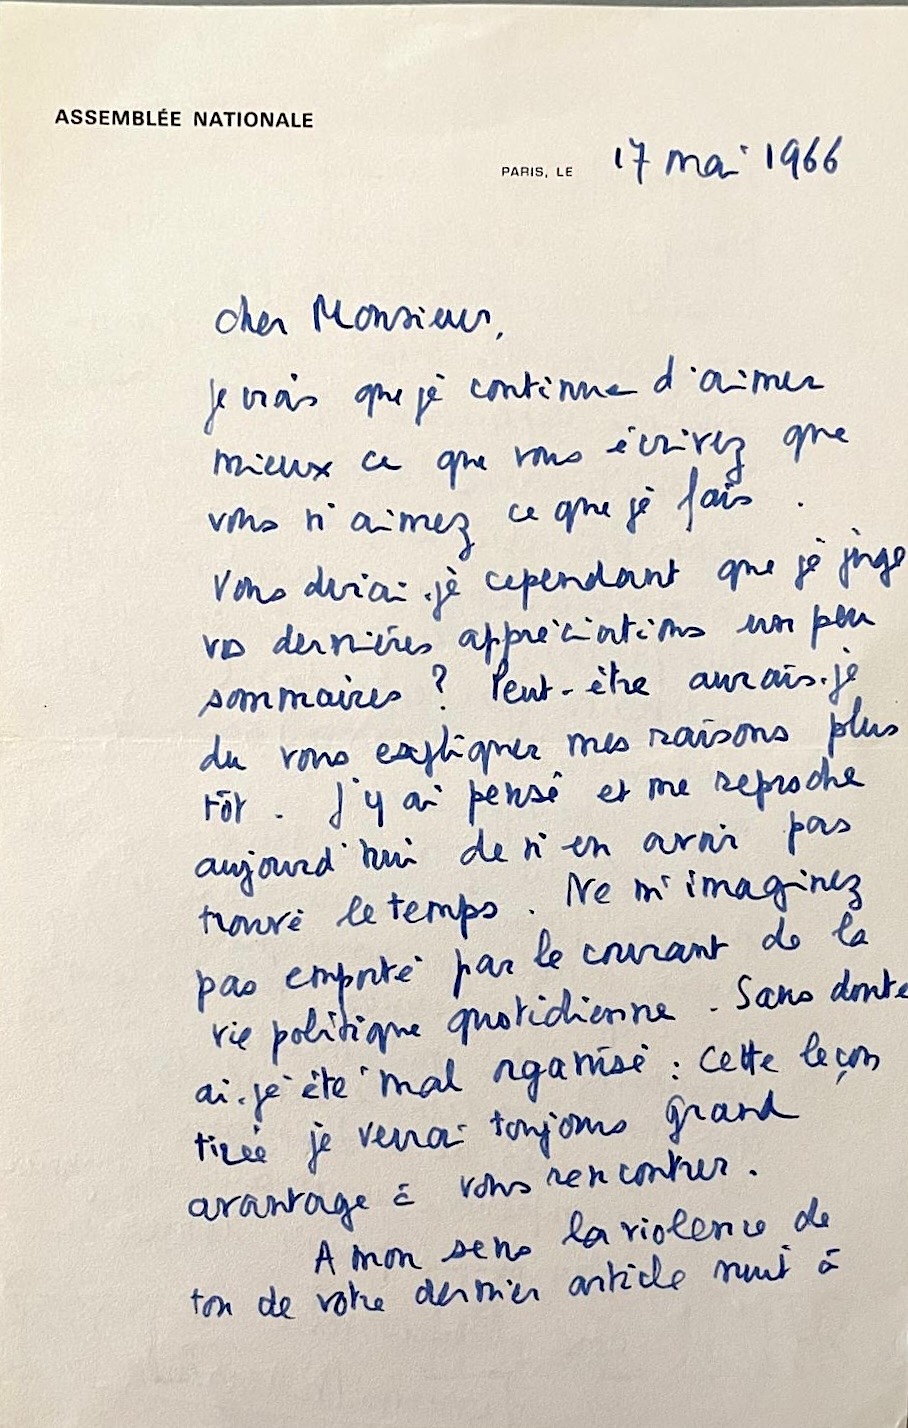 ASSEMBLÉE NATIONALE
PARIS, LE 17 mai 1966
cher Monsieur,
je crois que je continue d'aimer
mieux ce que vous écrivez que
vous n'aimez ce que je fais.
Vous dirai-je cependant que je juge
vos dernières appréciations un peu
sommaires ? Peut-être aurais-je
du vous expliquer mes raisons plus
tôt. J'y ai pensé et me reproche
aujourd'hui de n'en avoir pas
trouvé le temps. Ne m'imaginez
pas emporté par le courant de la
vie politique quotidienne. Sans doute
ai-je été mal organisé : cette leçon
tirée je verrai toujours grand
avantage à vous rencontrer.
A mon sens la violence de
ton de votre dernier article nuit à